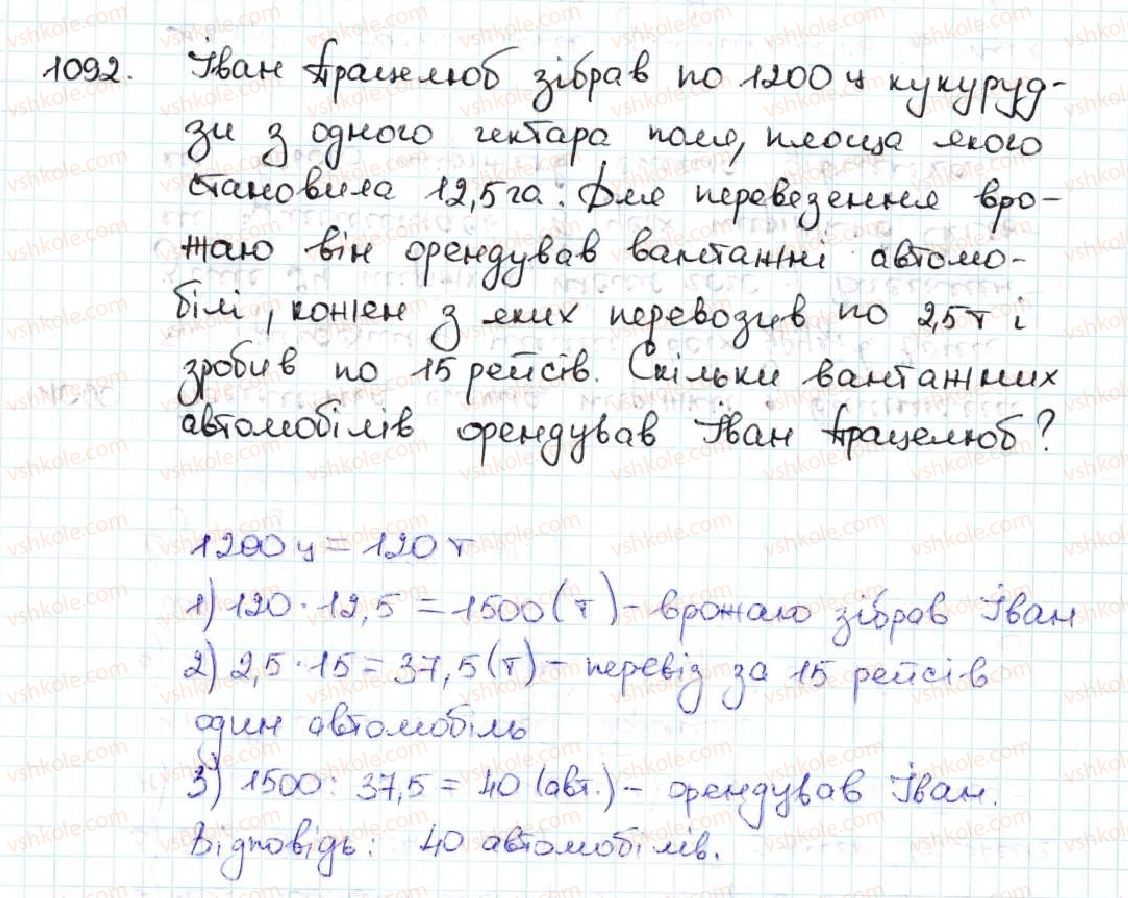 1092. Іван Працелюб зібрав по 1200 ц кукуруд-
зи з одного гектара поля, площа якого
становила 12,5 га. Для перевезення вро-
жаю він орендував вантажні автомо-
білі, кожен з яких перевозив по 2,5 т і
зробив по 15 рейсів. Скільки вантажних
автомобілів орендував Іван Працелюб?
1200 ц = 120 т
1) 120 · 12,5 = 1500 (т) - врожаю зібрав Іван
2) 2,5 · 15 = 37,5 (т) - перевіз за 15 рейсів
один автомобіль
3) 1500 : 37,5 = 40 (авт.) - орендував Іван.
Відповідь: 40 автомобілів.
vshkole.com